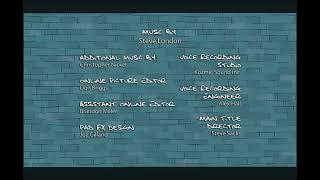 MUSIC BY
Steve London
ADDITIONAL MUSIC BY
Christopher Nickel
ONLINE PICTURE EDITOR
Dan Briggs
ASSISTANT ONLINE EDITOR
Brandon Miller
PAD FX DESIGN
Joe Gilland
VOICE RECORDING
STUDIO
Kozmic Sound Inc.
VOICE RECORDING
ENGINEER
Alex Hall
MAIN TITLE
DIRECTOR
Steve Sack